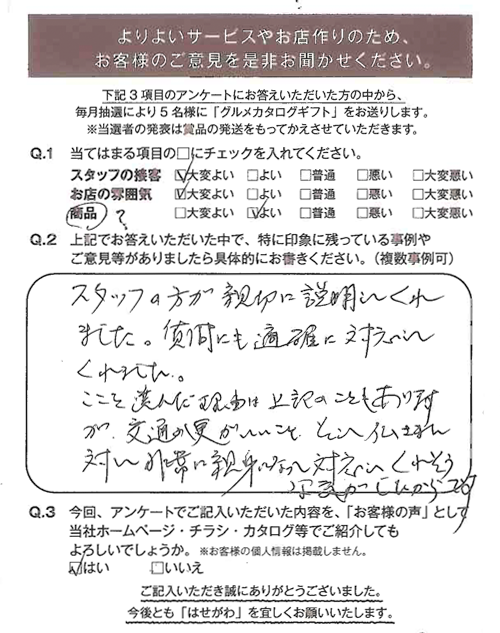 よりよいサービスやお店作りのため、
お客様のご意見を是非お聞かせください。
下記3項目のアンケートにお答えいただいた方の中から、
毎月抽選により5名様に「グルメカタログギフト」をお送りします。
※当選者の発表は賞品の発送をもってかえさせていただきます。
Q.1 当てはまる項目の□にチェックを入れてください。
スタッフの接客 ☑大変よい □よい □普通 □悪い □大変悪い
お店の雰囲気 ☑大変よい □よい □普通 □悪い □大変悪い
商品 ? □大変よい ☑よい □普通 □悪い □大変悪い
Q.2 上記でお答えいただいた中で、特に印象に残っている事例や
ご意見等がありましたら具体的にお書きください。(複数事例可)
スタッフの方が親切に説明してくれ
ました。質問にも適確に対応して
くれました。
ここを選んだ理由は上記のこともあります
が、交通の便がいいこと、そして仏さまに
対し非常に親身になって対応してくれそう
な気がしたからです
Q.3 今回、アンケートでご記入いただいた内容を、「お客様の声」として
当社ホームページ・チラシ・カタログ等でご紹介しても
よろしいでしょうか。※お客様の個人情報は掲載しません。
☑はい □いいえ
ご記入いただき誠にありがとうございました。
今後とも「はせがわ」を宜しくお願いいたします。